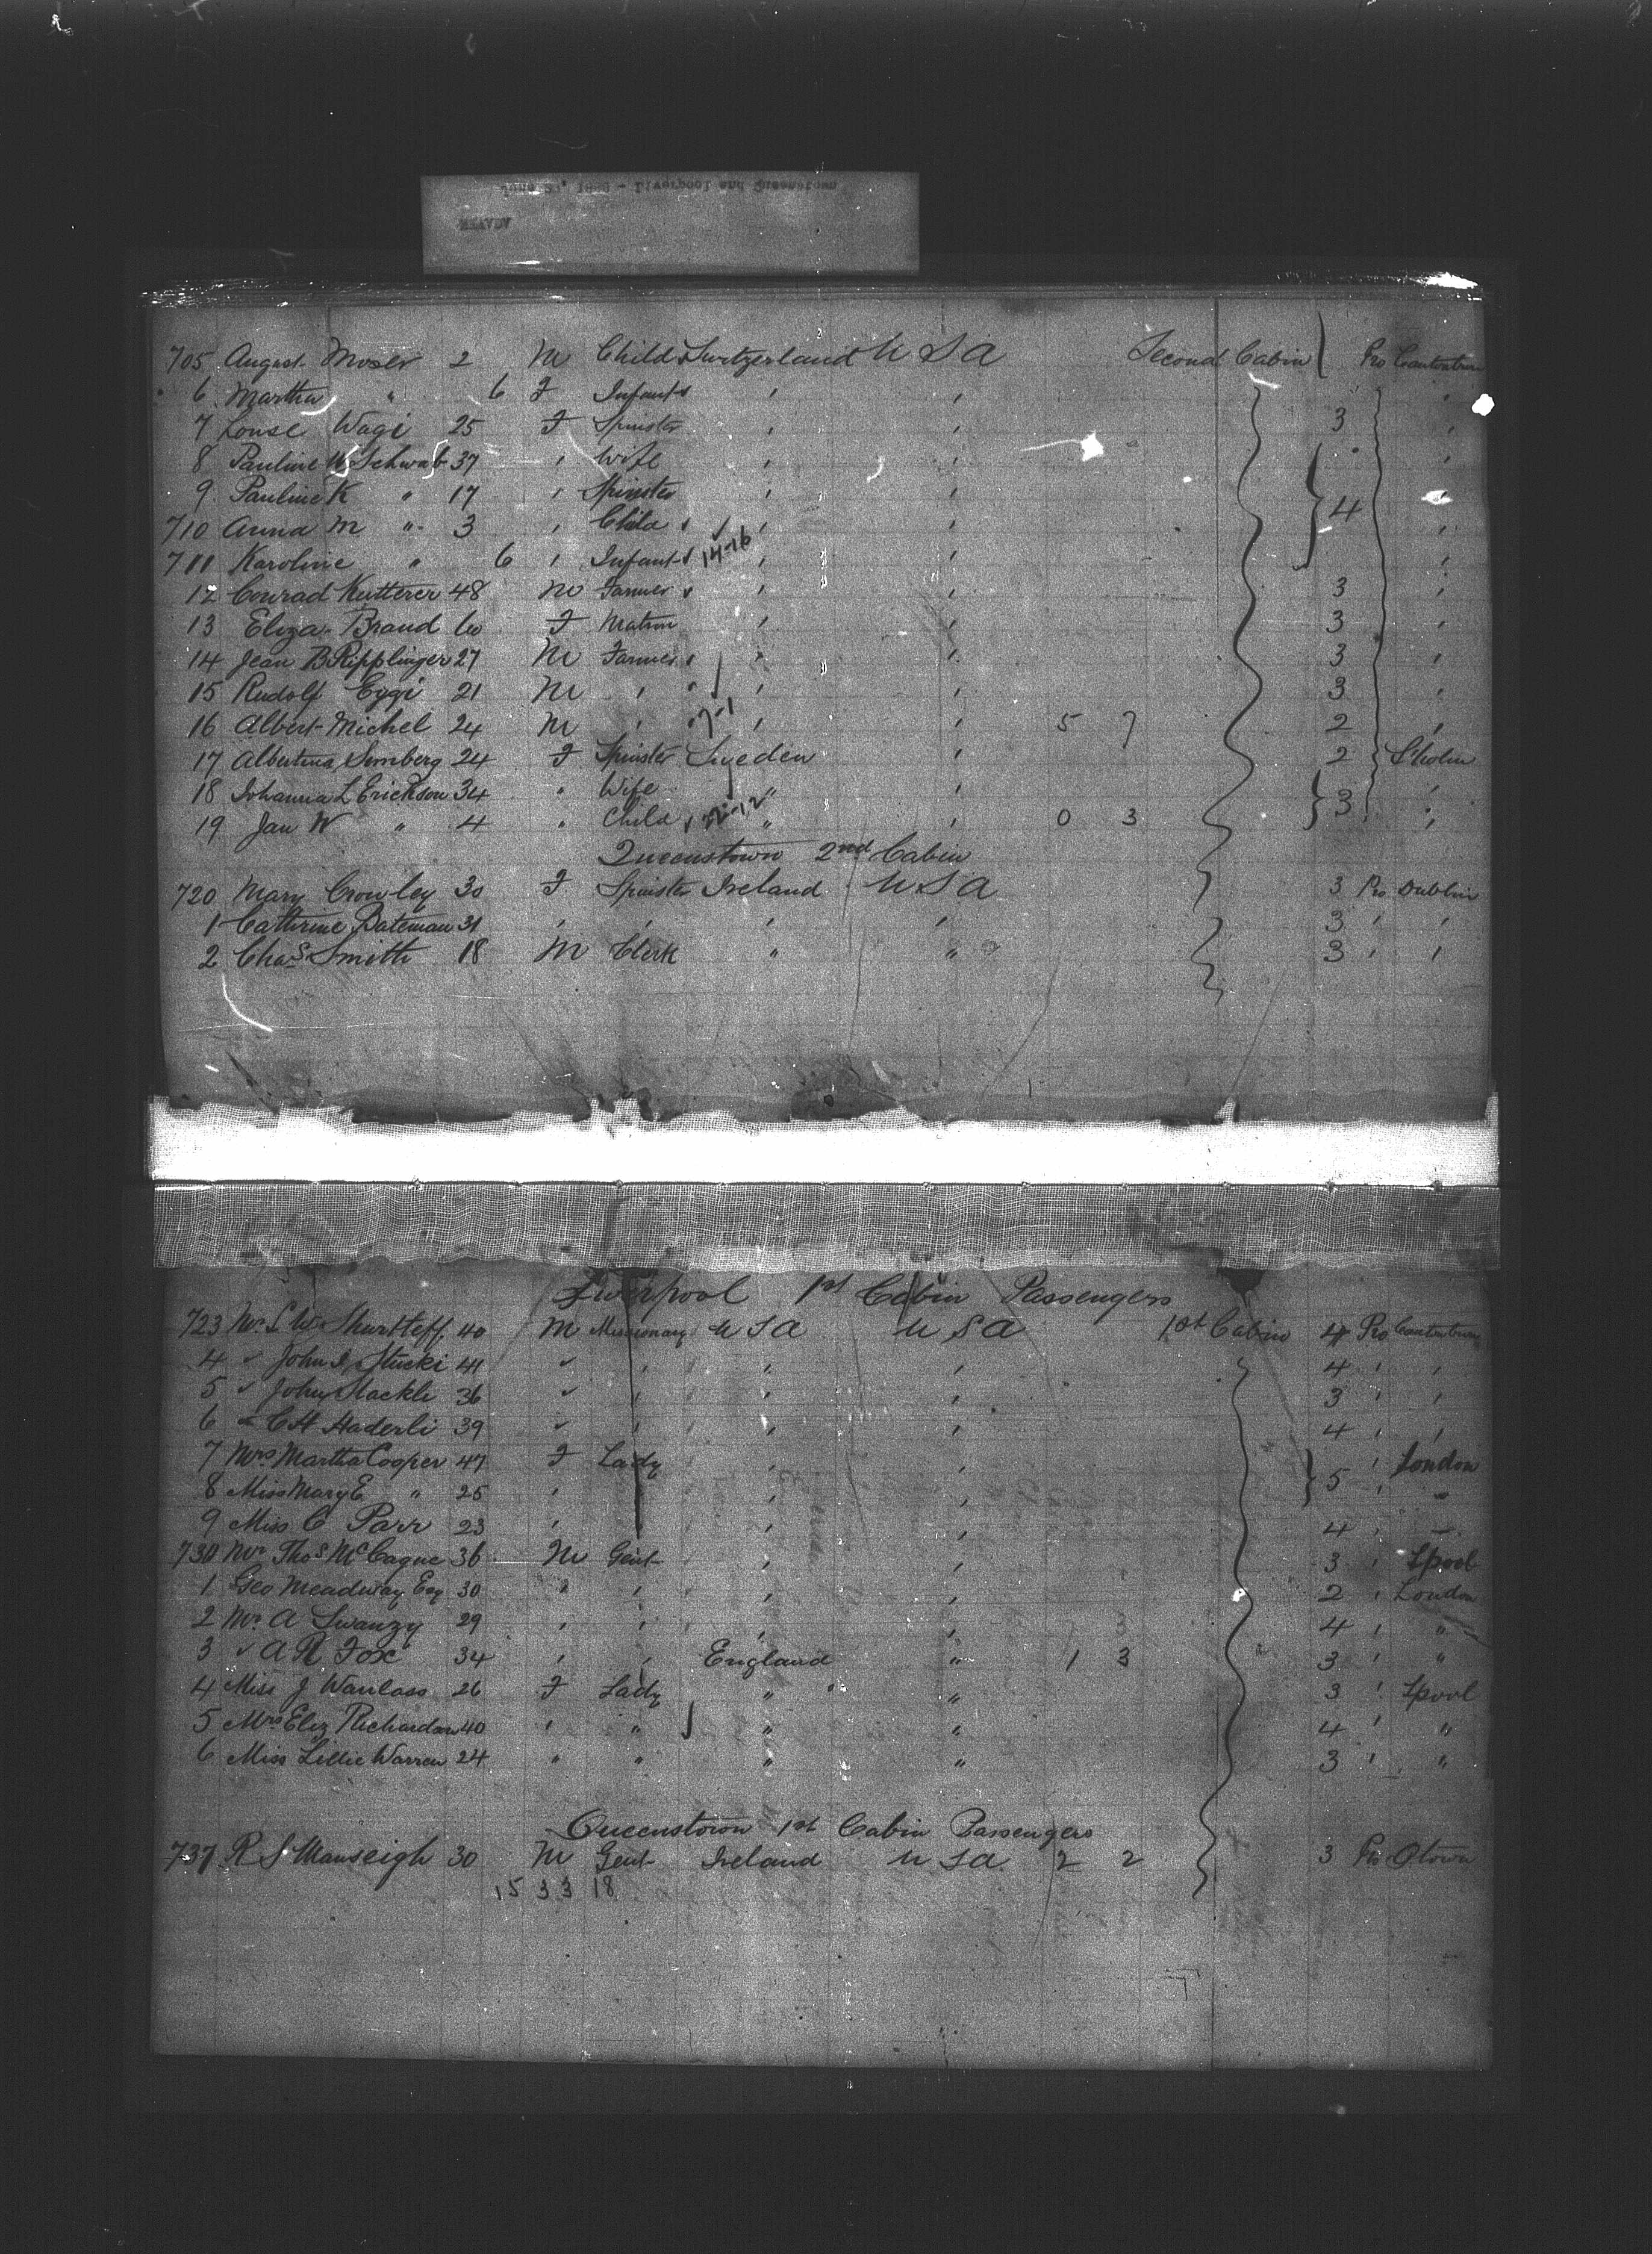 June 27, 1889 - Liverpool and Queenstown
705 August Moser 2 M Child Switzerland U S A Second Cabin Pro
6 Martha " 6 F Infant
7 Louse Wagi 25 F Spinster 3
8 Pauline W Schwab 37 Wife
9 Pauline K " 17 Spinster 4
710 Anna M " 3 Child
711 Karoline " 6 Infant 14-16
12 Conrad Kutterer 48 M Farmer 3
13 Eliza Braud 60 F Matron 3
14 Jean B Ripplinger 27 M Farmer 3
15 Rudolf Eggi 21 M 3
16 Albert Michel 24 M 7-1 5 7 2
17 Albertina Simberg 24 F Spinster Sweden 2 S'holm
18 Johanna L Erickson 34 " Wife " 3
19 Jan W " 4 " Child " 0 3
Queenstown 2nd Cabin
720 Mary Crowley 30 F Spinster Ireland U S A 3 Pro Dublin
1 Cathrine Bateman 31 3
2 Chas Smith 18 M Clerk " " 3
Liverpool 1st Cabin Passengers
723 Mr L W Shurtleff 40 M Missionary U S A U S A 1st Cabin 4 Pro
4 John Stucki 41 4
5 John Stackli 36 3
6 C H Haderli 39 4
7 Mrs Martha Cooper 47 F Lady 5 London
8 Miss Mary E " 25 "
9 Miss C Parr 23 4
730 Mr Thos McCague 36 M Gent 3 Lpool
1 Geo Meadway Esq 30 " 2 London
2 Mr A Swanzy 29 4 "
3 A R Fox 34 England " 1 3 3 "
4 Miss J Wanlass 26 F Lady " " 3 Lpool
5 Mrs Eliz Richardson 40 " " " 4 "
6 Miss Lillie Warren 24 " " " " 3 "
Queenstown 1st Cabin Passengers
737 R S Mauseigh 30 M Gent Ireland U S A 2 2 3 Pro Qtown
15 33 18